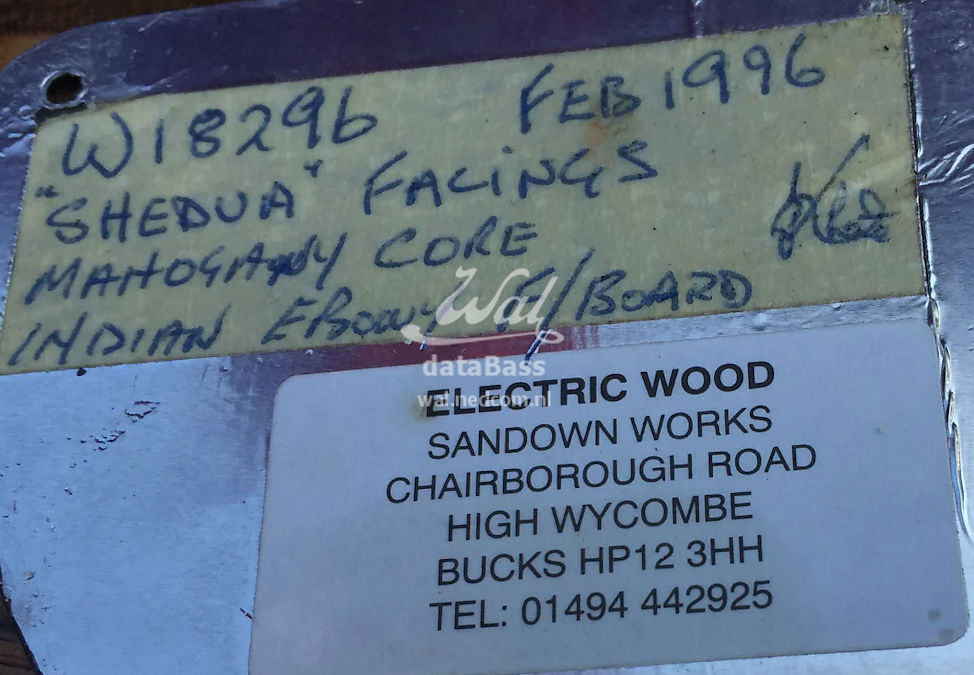 W18296 FEB 1996
"SHEDUA" FACINGS
MAHOGANY CORE
INDIAN EBONY F/BOARD
Wal
dataBass
wal.nedcom.nl
ELECTRIC WOOD
SANDOWN WORKS
CHAIRBOROUGH ROAD
HIGH WYCOMBE
BUCKS HP12 3HH
TEL: 01494 442925